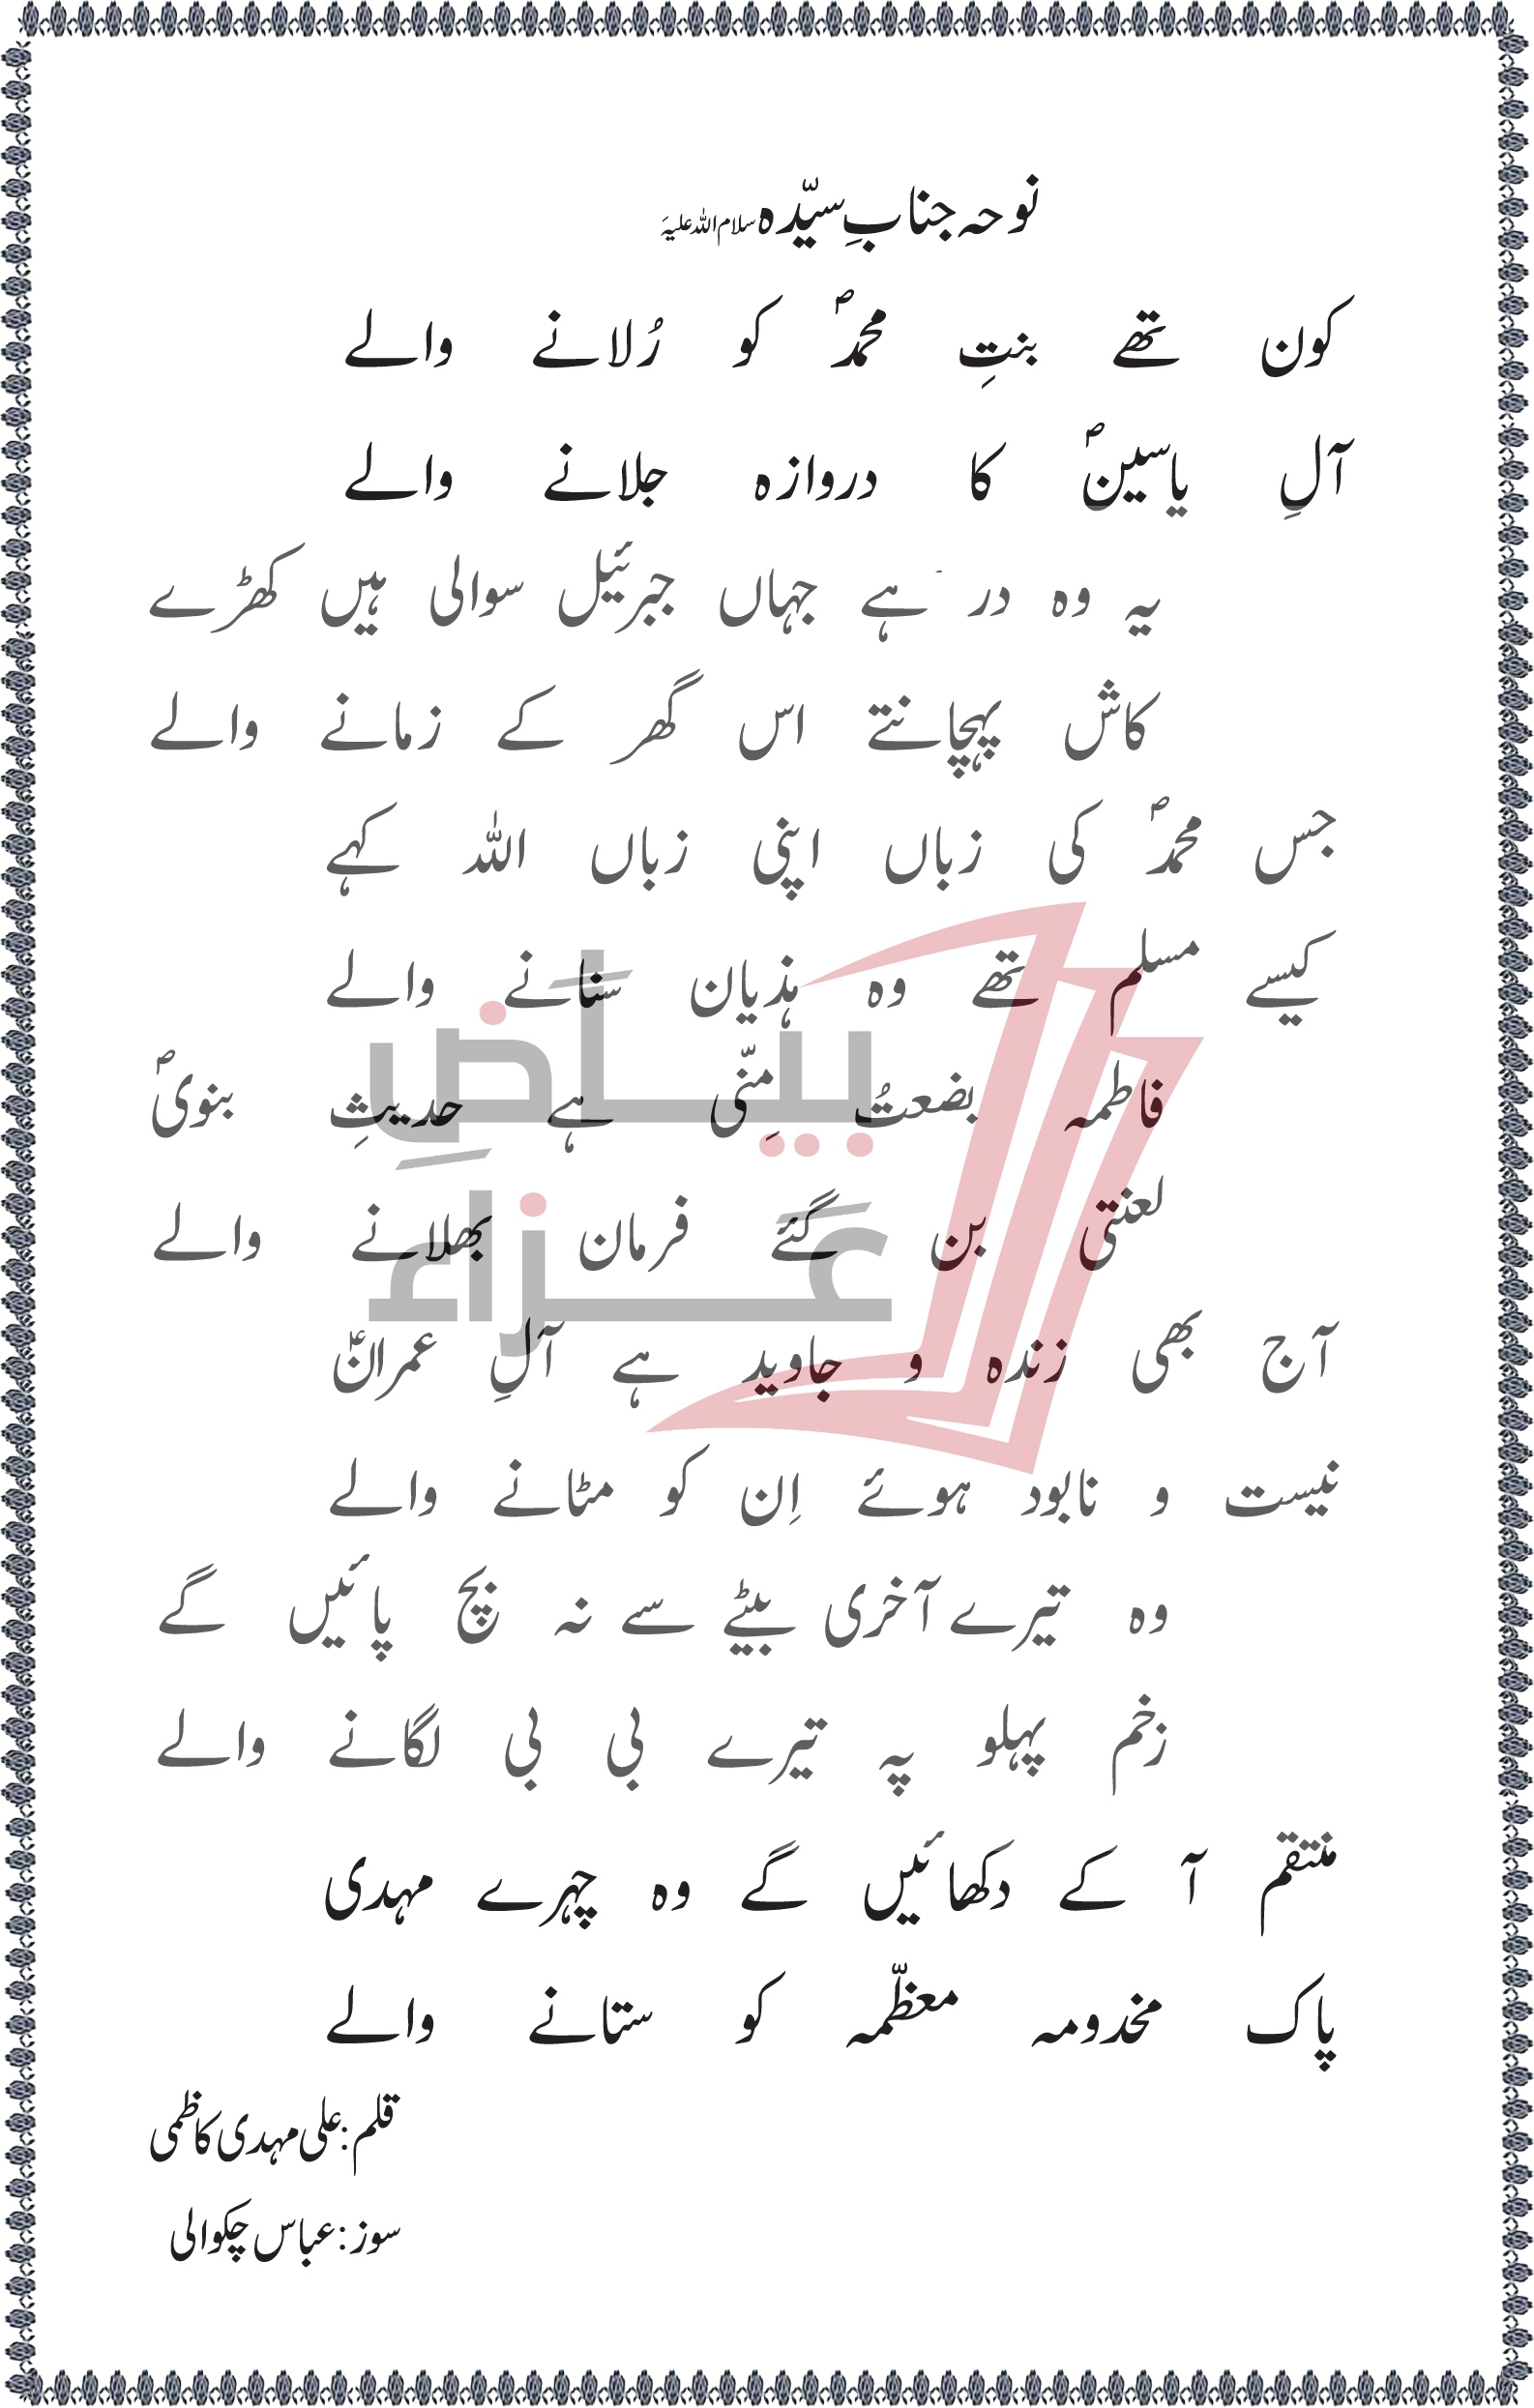 نوحہ جنابِ سیّدہ سلام اللہ علیہَ
کون تھے بنتِ محمدؐ کو رُلانے والے
آلِ یاسینؐ کا دروازہ جلانے والے
یہ وہ در ہے جہاں جبرئیل سوالی ہیں کھڑے
کاش پہچانتے اس گھر کے زمانے والے
جس محمدؐ کی زباں اپنی زباں اللہ کہے
کیسے مسلم تھے وہ ہذیان سنانے والے
فاطمہ بضعتُ مِنّی ہے حدیثِ بنویؐ
لعنتی بن گئے فرمان بھلانے والے
آج بھی زندہ و جاوید ہے آلِ عمرانؑ
نیست و نابود ہوئے اِن کو مٹانے والے
وہ تیرے آخری بیٹے سے نہ بچ پائیں گے
زخم پہلو پہ تیرے بی بی لگانے والے
منتقم آ کے دکھائیں گے وہ چہرے مہدی
پاک مخدومہ معظّمہ کو ستانے والے
قلم: علی مہدی کاظمی
سوز: عباس چکوالی
بیاضِ
عزاء